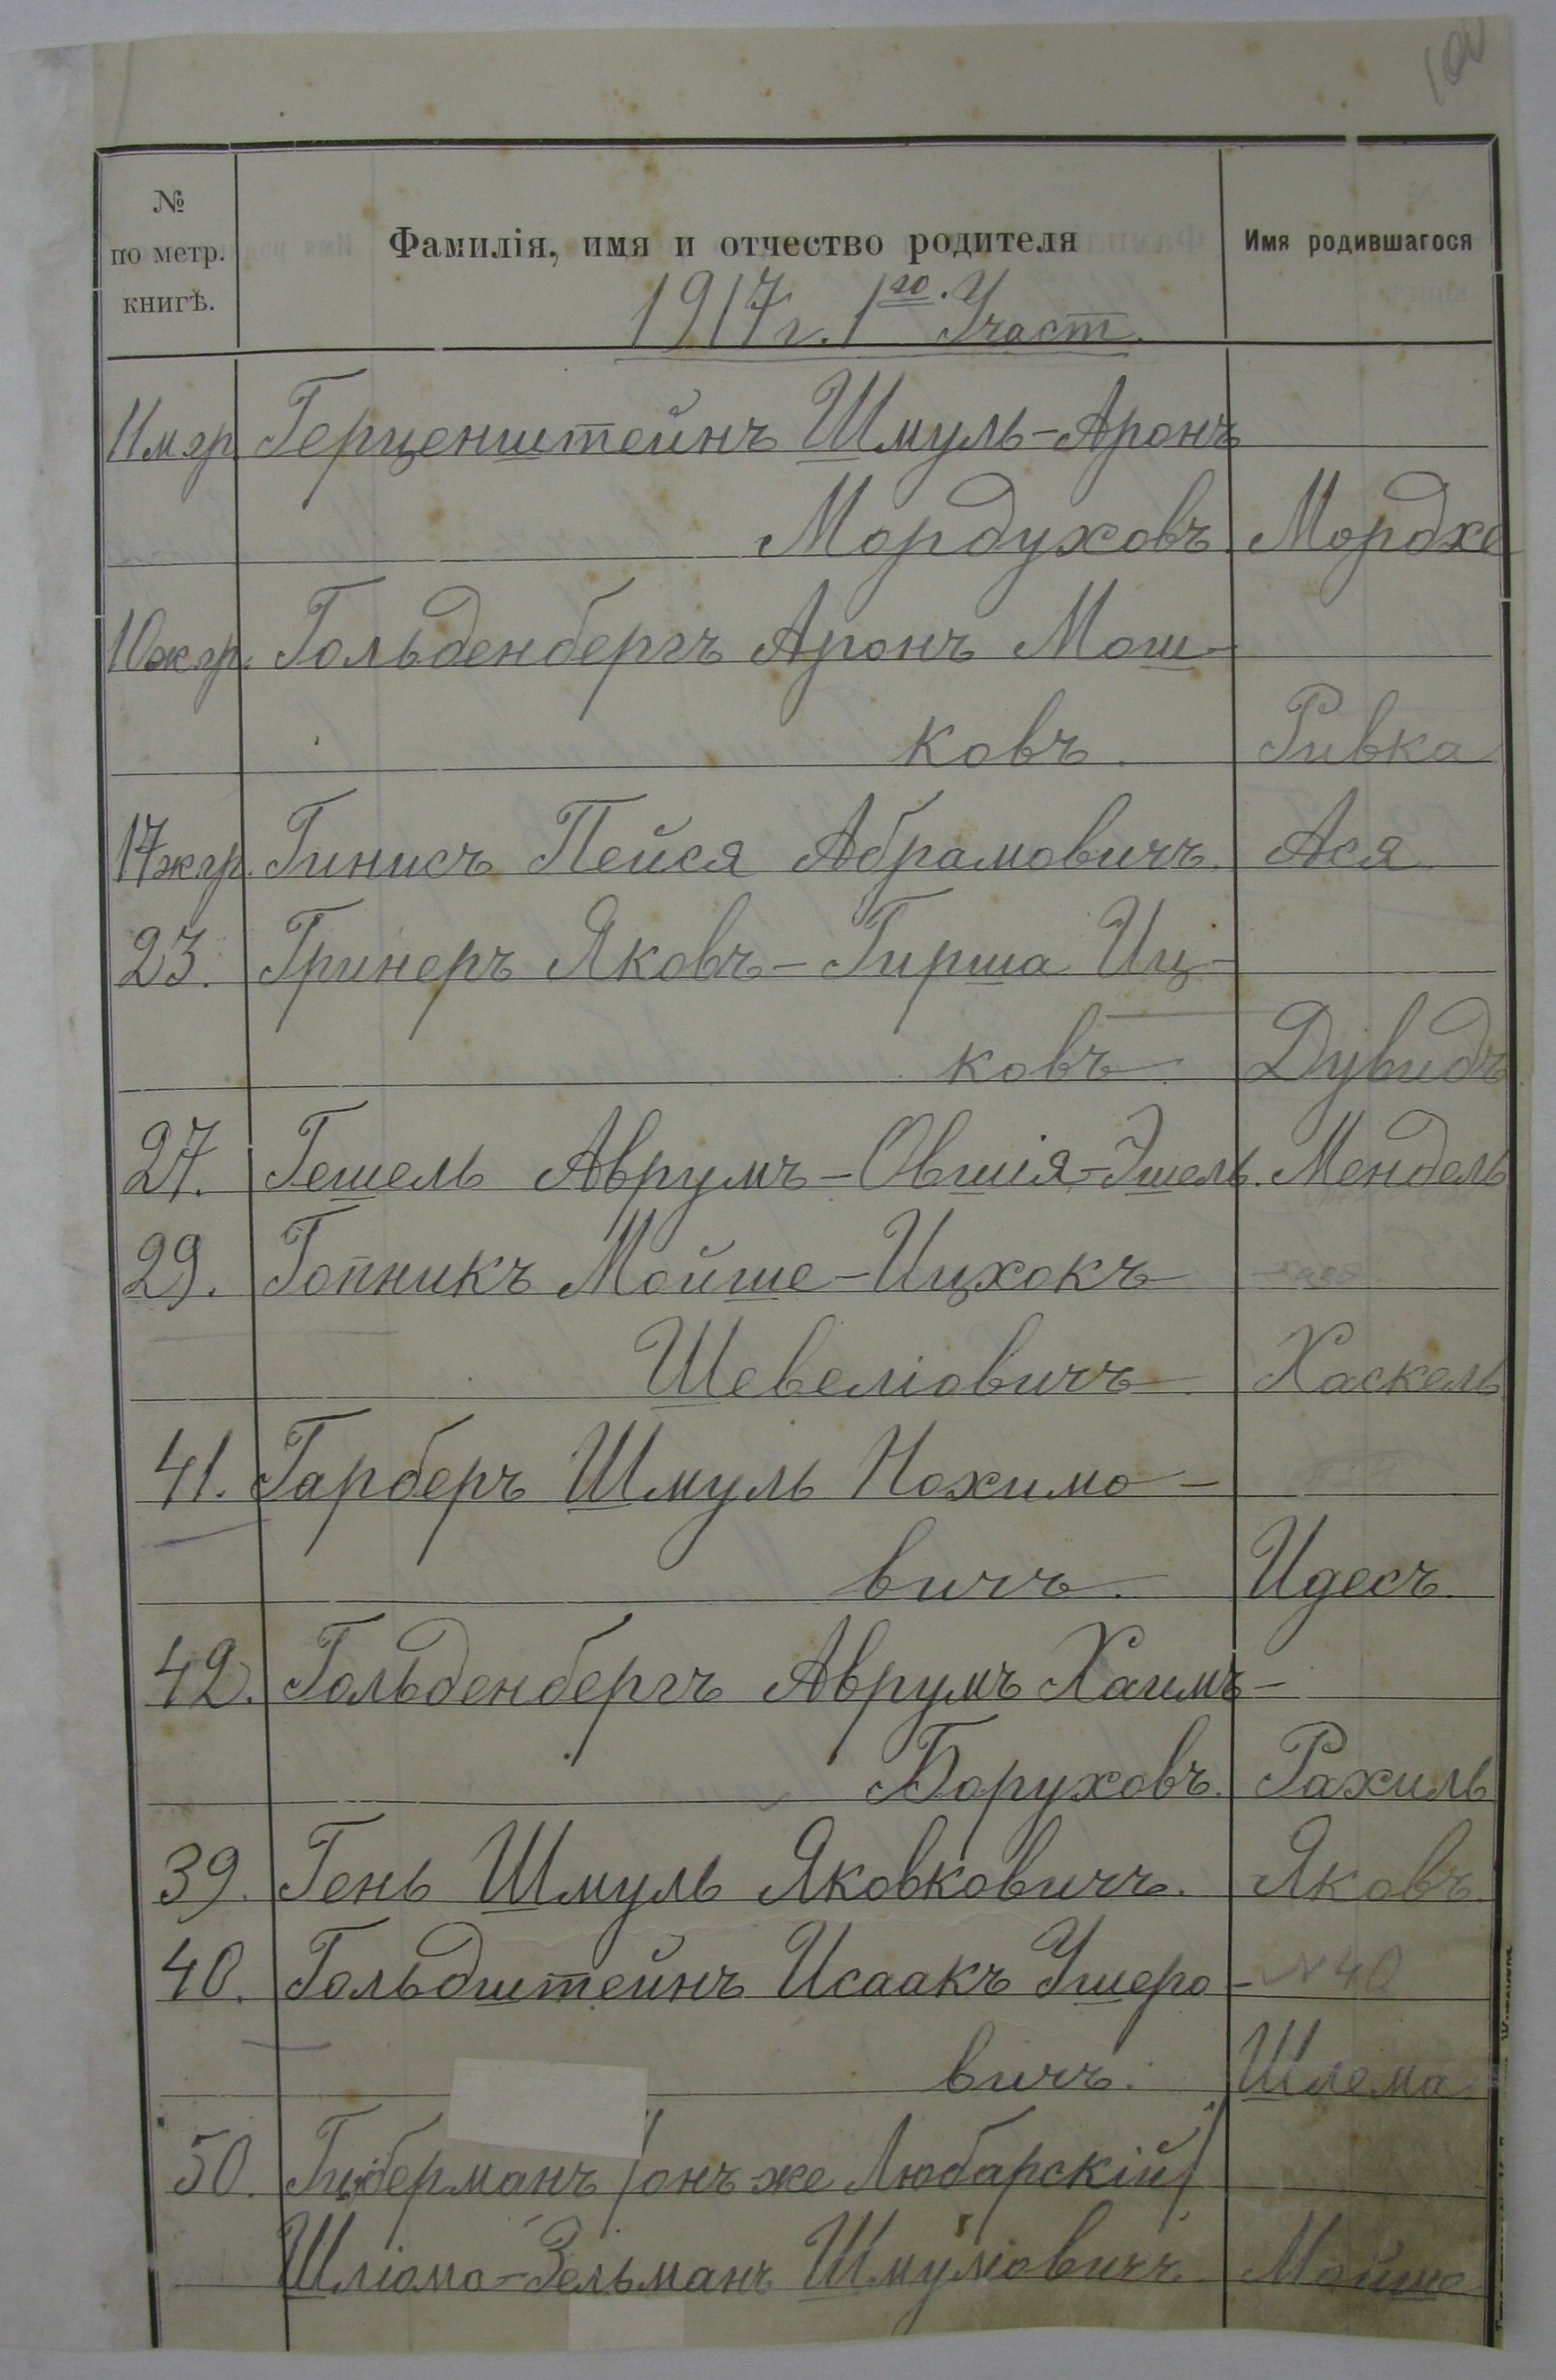 №
по метр.
книгѣ.
Фамилія, имя и отчество родителя
Имя родившагося
1917 г. 1го. Участ.
11 м гр. Герценштейнъ Шмуль-Аронъ
Мордуховъ. Мордхо
10 ж гр. Гольденбергъ Аронъ Мош-
ковъ. Ривка
17 ж гр. Гинисъ Пейся Абрамовичъ. Ася
23. Гринеръ Яковъ-Гирша Иц-
ковъ. Дувидъ
27. Гешель Аврумъ-Овшія-Эшель. Мендель
29. Гопникъ Мойше-Ицхокъ
Шевеліовичъ. Хаскель
41. Гарберъ Шмуль Нохимо-
вичъ. Идесъ.
42. Гольденбергъ Аврумъ Хаимъ-
Боруховъ. Рахиль
39. Гень Шмуль Яковковичъ. Яковъ.
40. Гольдштейнъ Исаакъ Ушеро- №40
вичъ. Шлема
50. /онъ-же Любарскій/
Шліомо-Зельманъ Шмуліовичъ Мойше